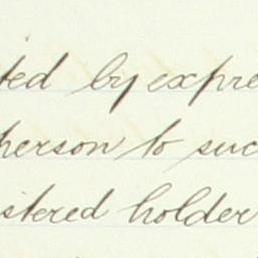 ted by expre
person to suc
istered holder